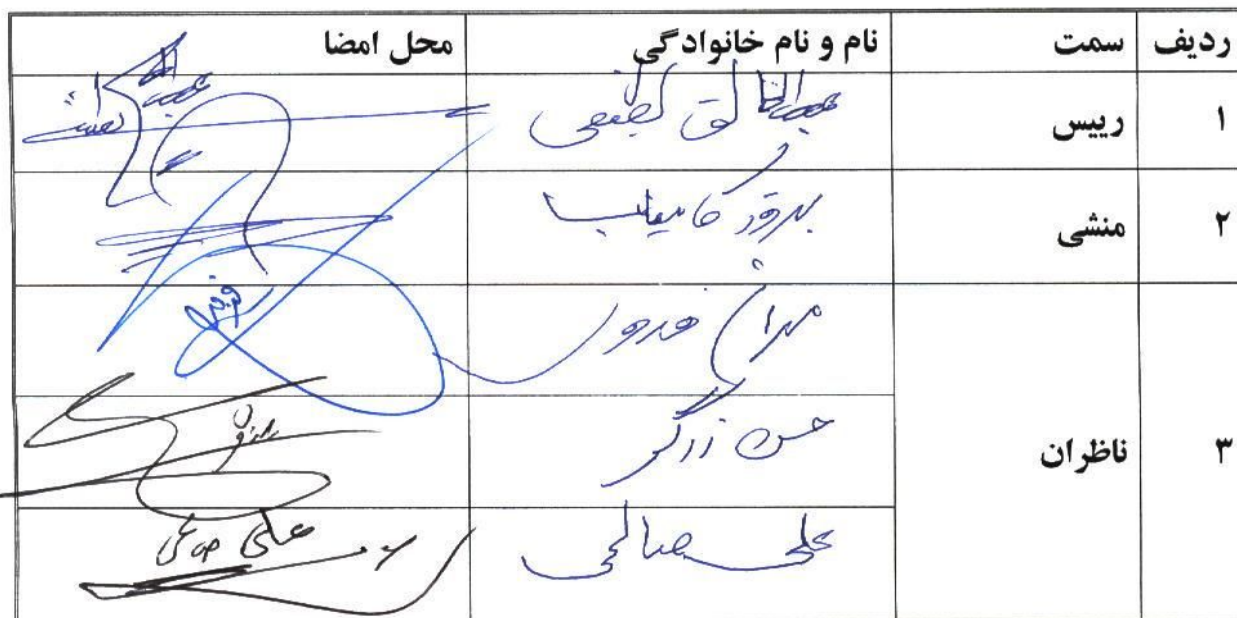 ردیف سمت نام و نام خانوادگی محل امضا
۱ رییس عبدالخالق لطیفی
۲ منشی بهروز کامیاب
۳ ناظران مهران
حسن زرگر
علی صالحی
علی